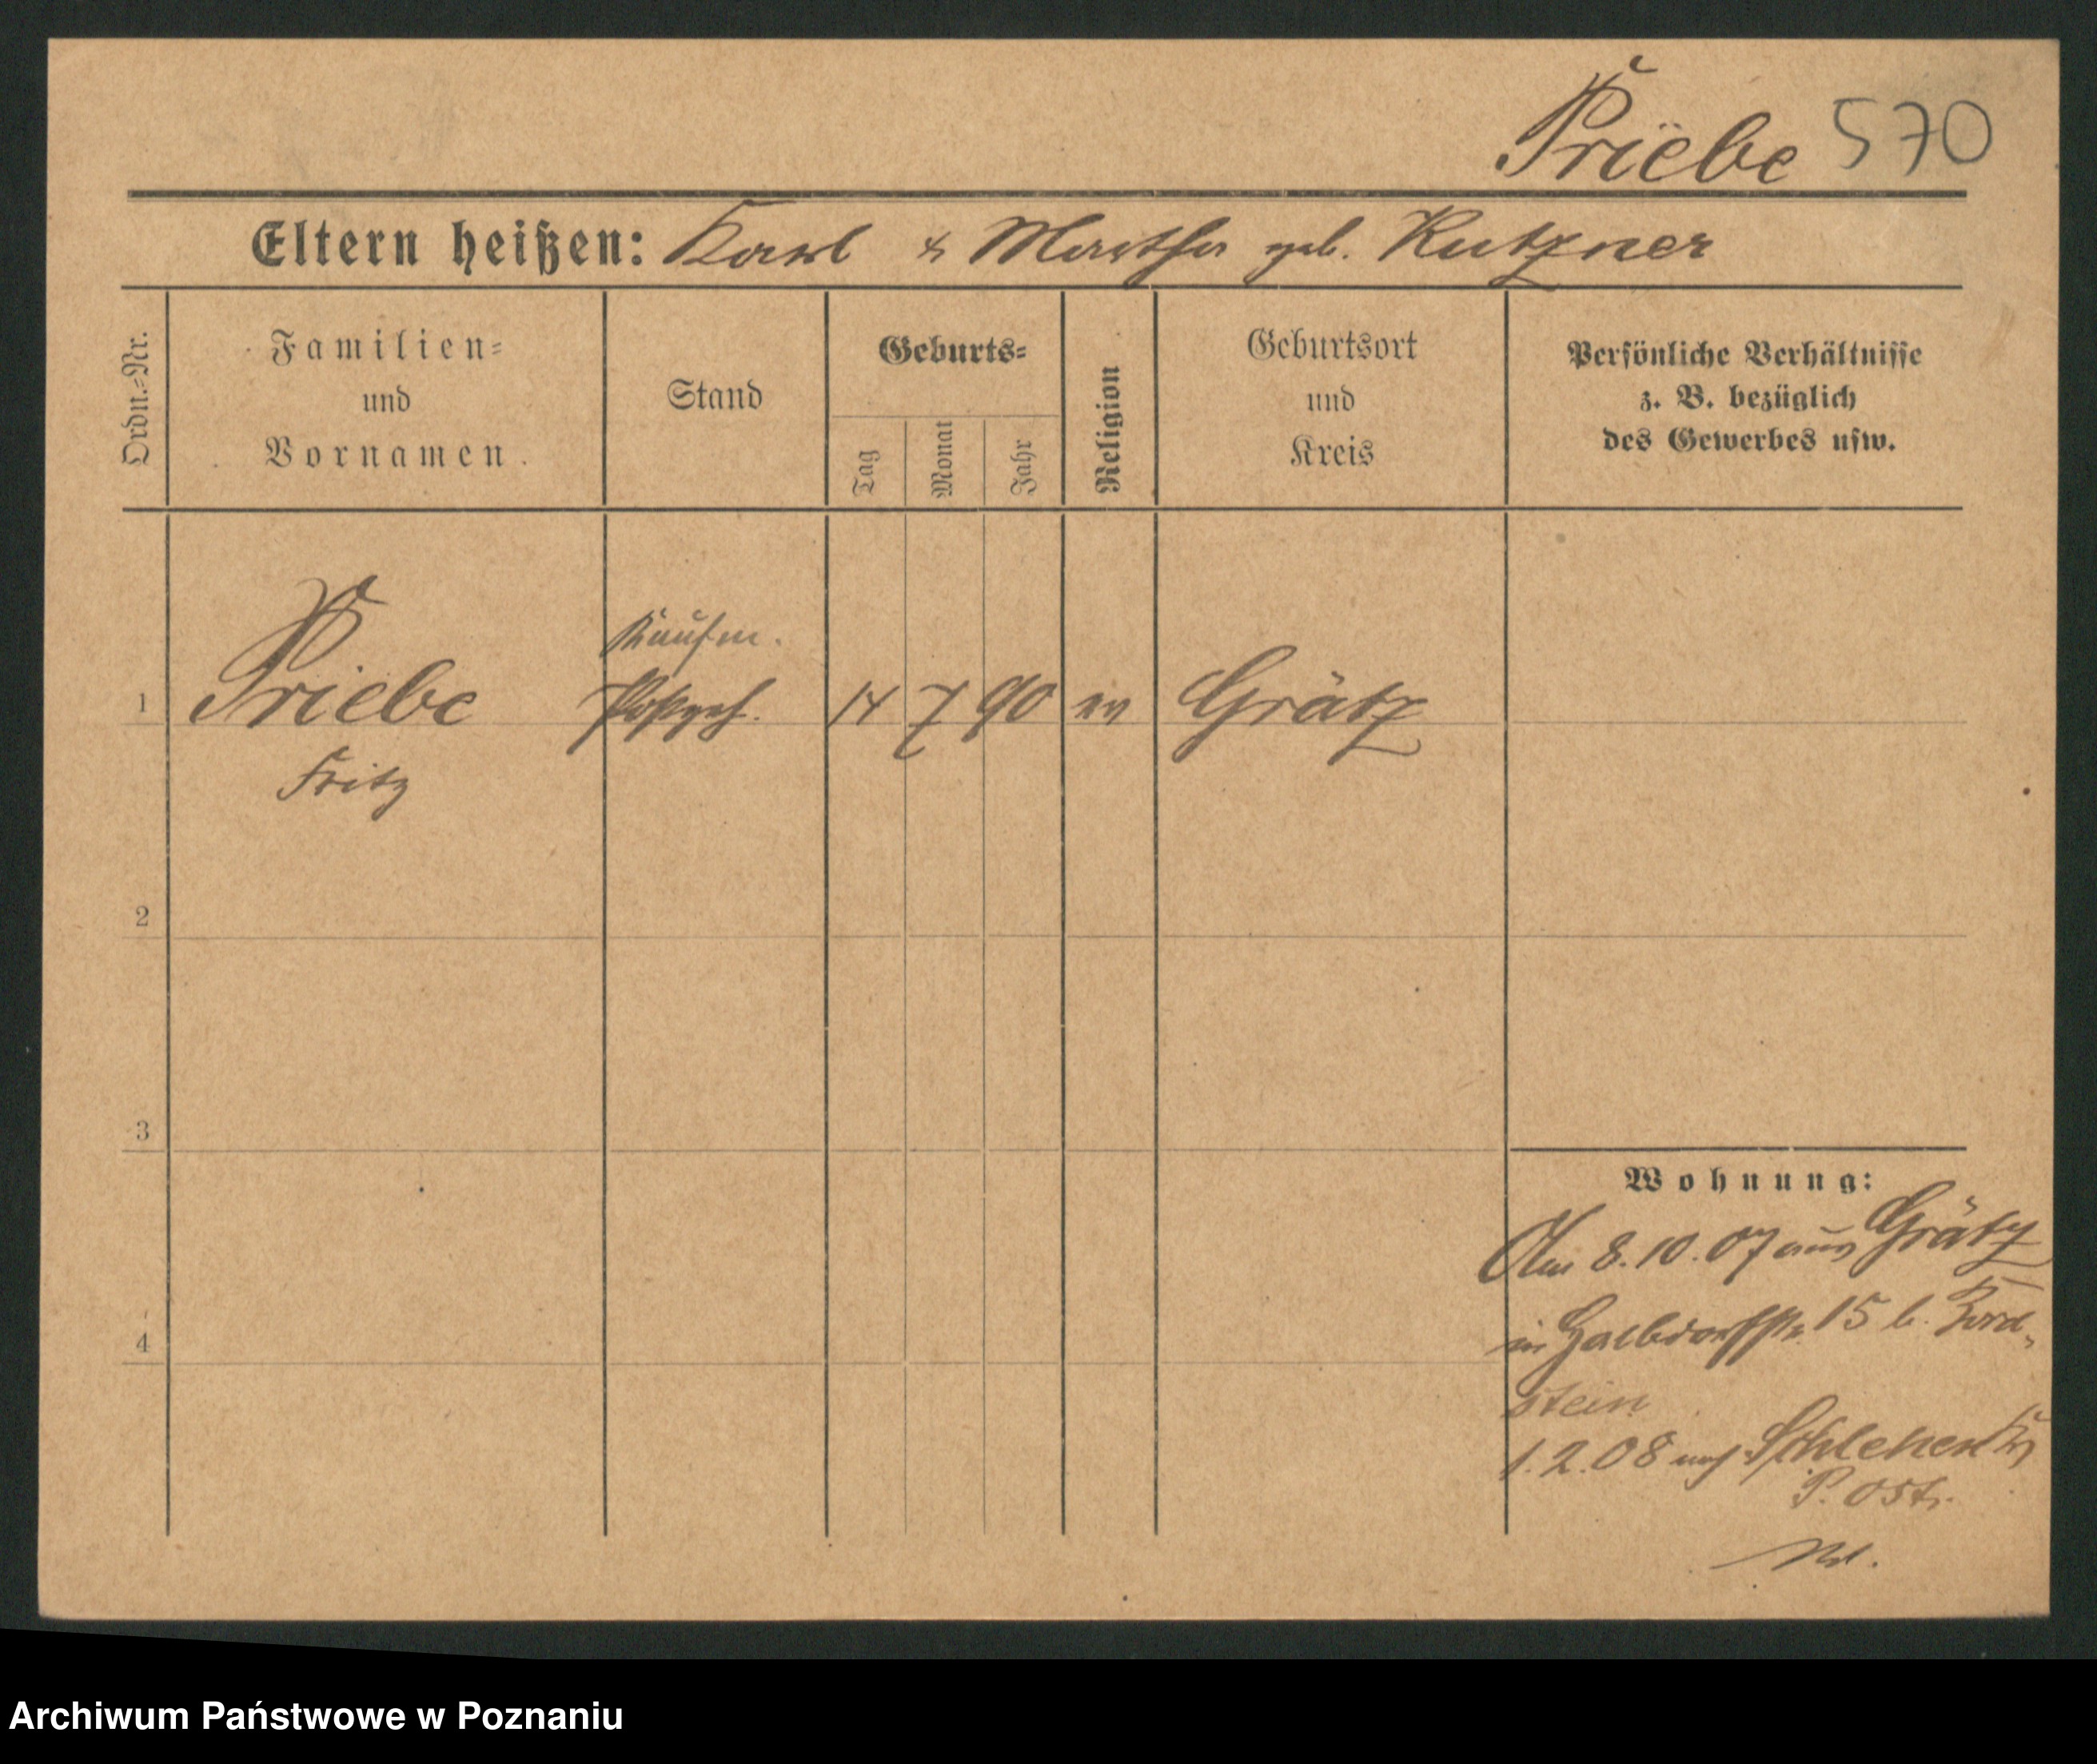 Priebe 570
Eltern heißen: Karl & Martha geb. Kutzner
Ordn.-Nr.
Familien-
und
Vornamen.
Stand
Geburts-
Tag
Monat
Jahr
Religion
Geburtsort
und
Kreis
Persönliche Verhältnisse
z. B. bezüglich
des Gewerbes usw.
Kaufm.
1 Priebe 14 7 90 ev Grätz
Fritz
2
3
4
Wohnung:
Am 8.10.07 aus Grätz
in Halbdorfstr. 15 b.
stein
1.2.08 nach Schlehen Kr
P. Ost.
Archiwum Państwowe w Poznaniu